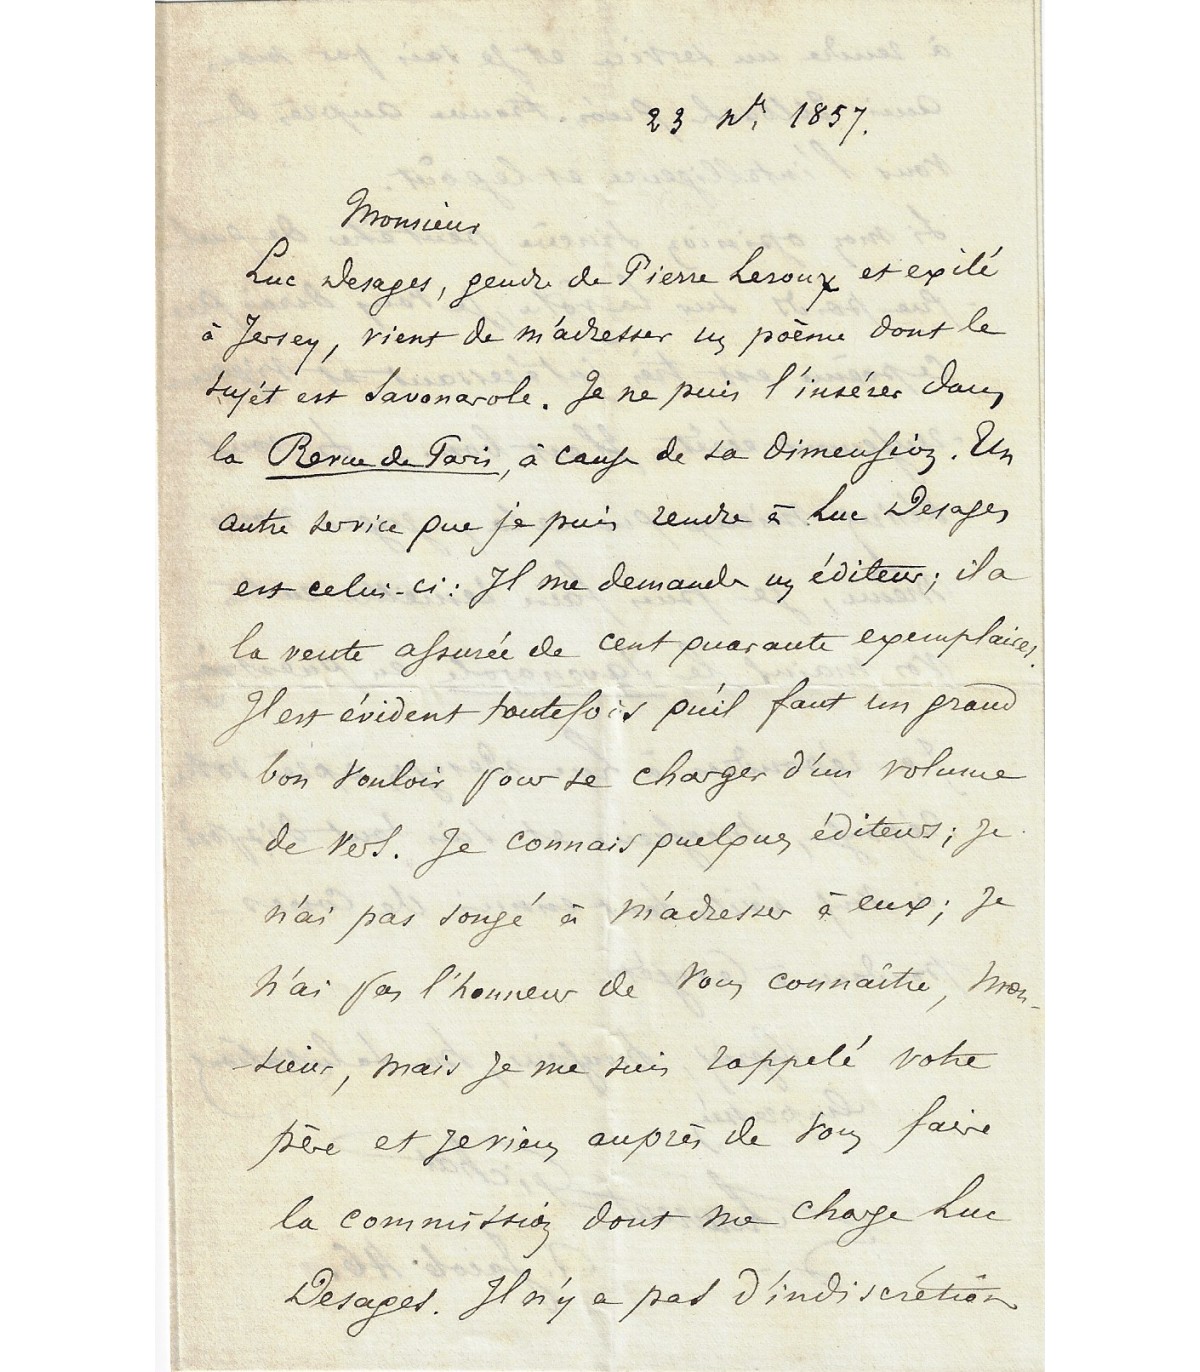 23 Nbre 1857.
Monsieur
Luc Desages, gendre de Pierre Leroux et exilé
à Jersey, vient de m'adresser un poëme dont le
sujet est Savonarole. Je ne puis l'insérer dans
la Revue de Paris, à cause de sa dimension. Un
autre service que je puis rendre à Luc Desages
est celui-ci : Il me demande un éditeur ; il a
la vente assurée de cent quarante exemplaires.
Il est évident toutefois qu'il faut un grand
bon vouloir pour se charger d'un volume
de vers. Je connais quelques éditeurs ; je
n'ai pas songé à m'adresser à eux ; je
n'ai pas l'honneur de vous connaître, Mon-
-sieur, mais je me suis rappelé votre
père et je viens auprès de vous faire
la commission dont me charge Luc
Desages. Il n'y a pas d'indiscrétion